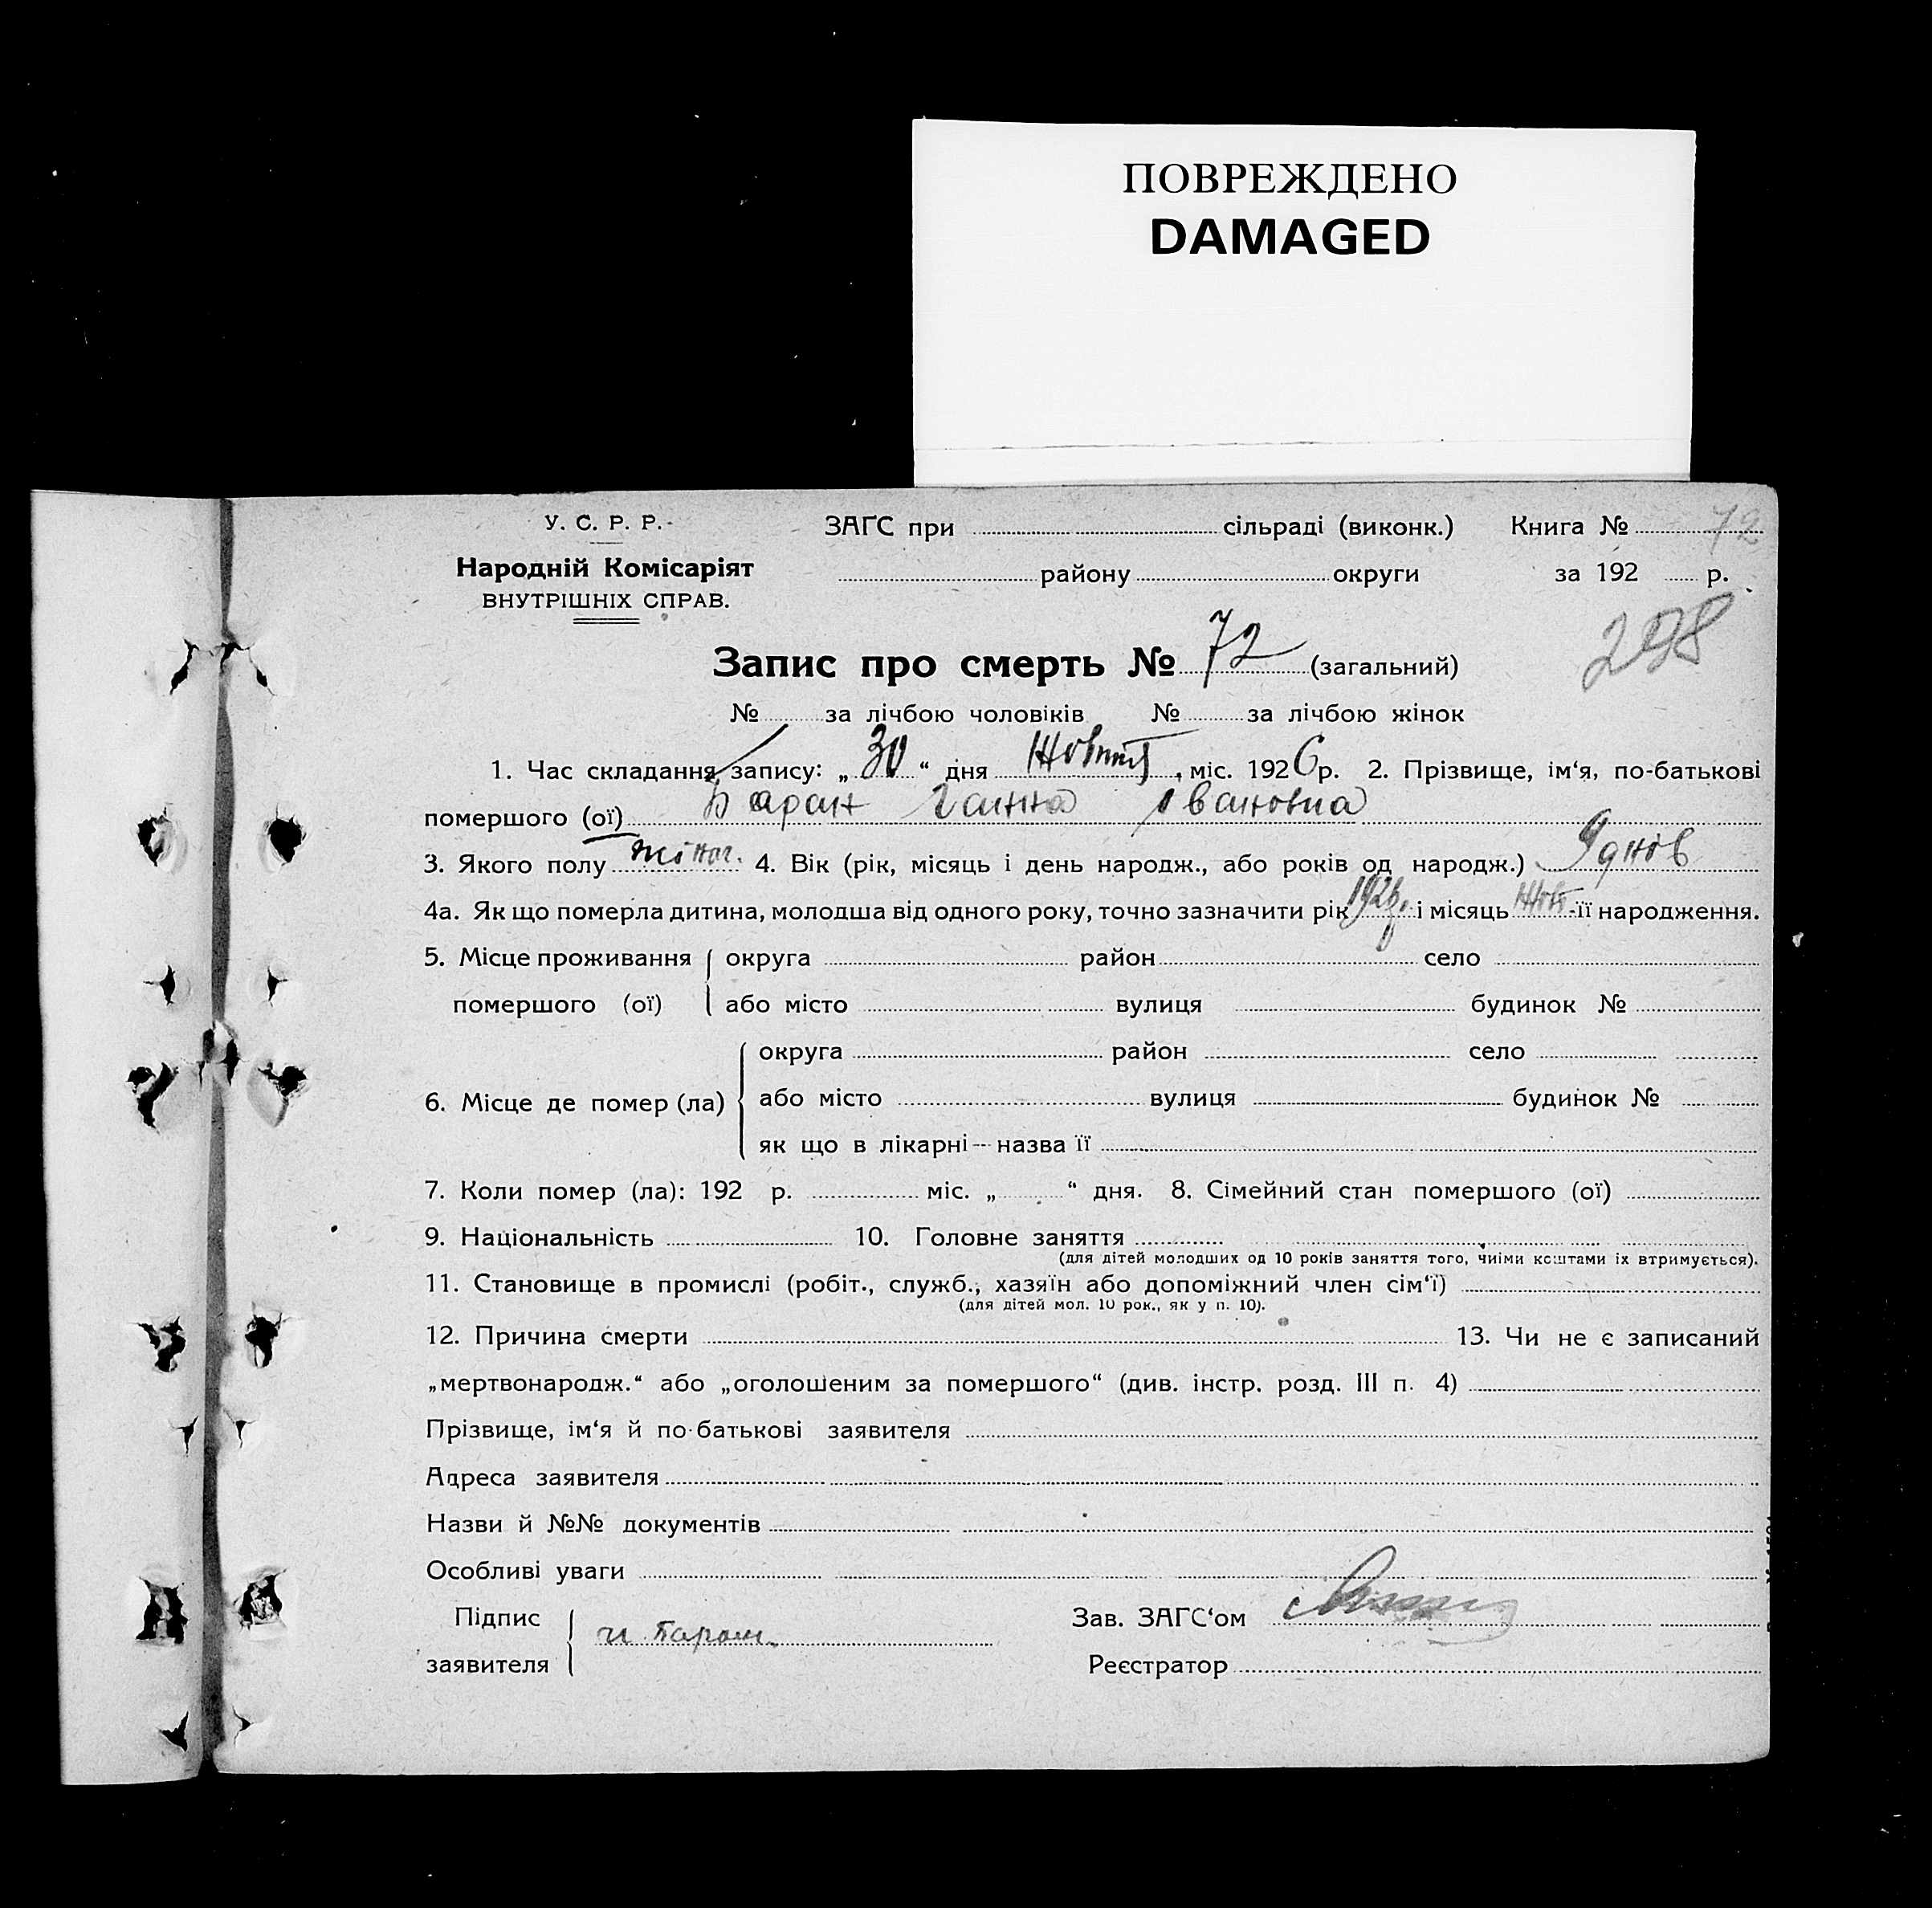 ПОВРЕЖДЕНО
DAMAGED
У. С. Р. Р.
ЗАГС при сільраді (виконк.) Книга № 72
Народній Комісаріят району округи за 192 р.
ВНУТРІШНІХ СПРАВ.
298
Запис про смерть № 72 (загальний)
№ за лічбою чоловіків № за лічбою жінок
1. Час складання запису: „30“ дня Жовтня міс. 1926 р. 2. Прізвище, ім‘я, по-батькові
помершого (ої) Баран Ганна Івановна
3. Якого полу жіноч. 4. Вік (рік, місяць і день народж., або років од народж.) 9 днів
4а. Як що померла дитина, молодша від одного року, точно зазначити рік і місяць Жовт її народження.
5. Місце проживання округа район село
помершого (ої) або місто вулиця будинок №
округа район село
6. Місце де помер (ла) або місто вулиця будинок №
як що в лікарні — назва її
7. Коли помер (ла): 192 р. міс. „ “ дня. 8. Сімейний стан помершого (ої)
9. Національність 10. Головне заняття
(для дітей молодших од 10 років заняття того, чиїми коштами їх втримується).
11. Становище в промислі (робіт., служб., хазяїн або допоміжний член сім‘ї)
(для дітей мол. 10 рок., як у п. 10).
12. Причина смерти 13. Чи не є записаний
„мертвонародж.“ або „оголошеним за помершого“ (див. інстр. розд. III п. 4)
Прізвище, ім‘я й по-батькові заявителя
Адреса заявителя
Назви й №№ документів
Особливі уваги
Підпис Зав. ЗАГС‘ом
заявителя Реєстратор